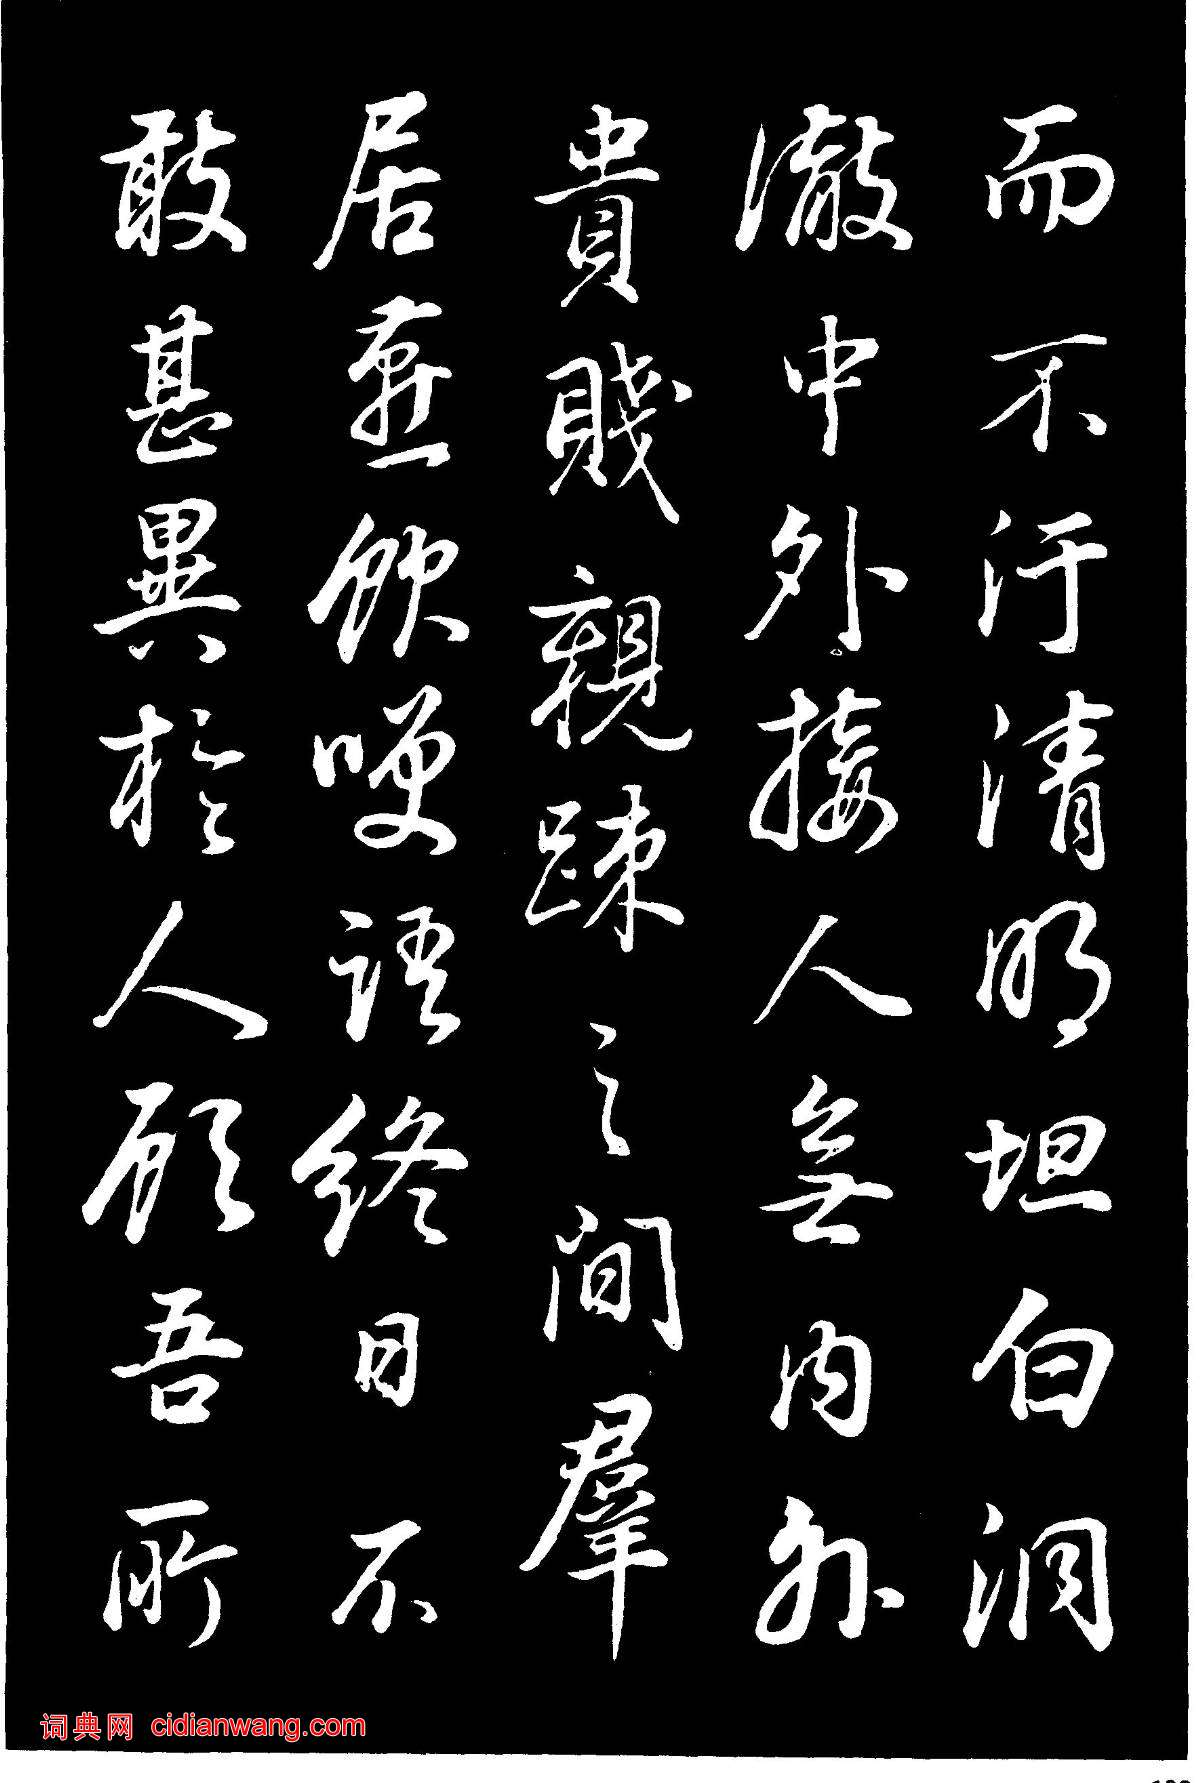 而不汙清明坦白洞
澈中外接人無內外
貴賤親踈之間羣
居燕飲哽語終日不
敢甚異於人顧吾所
词典网 cidianwang.com